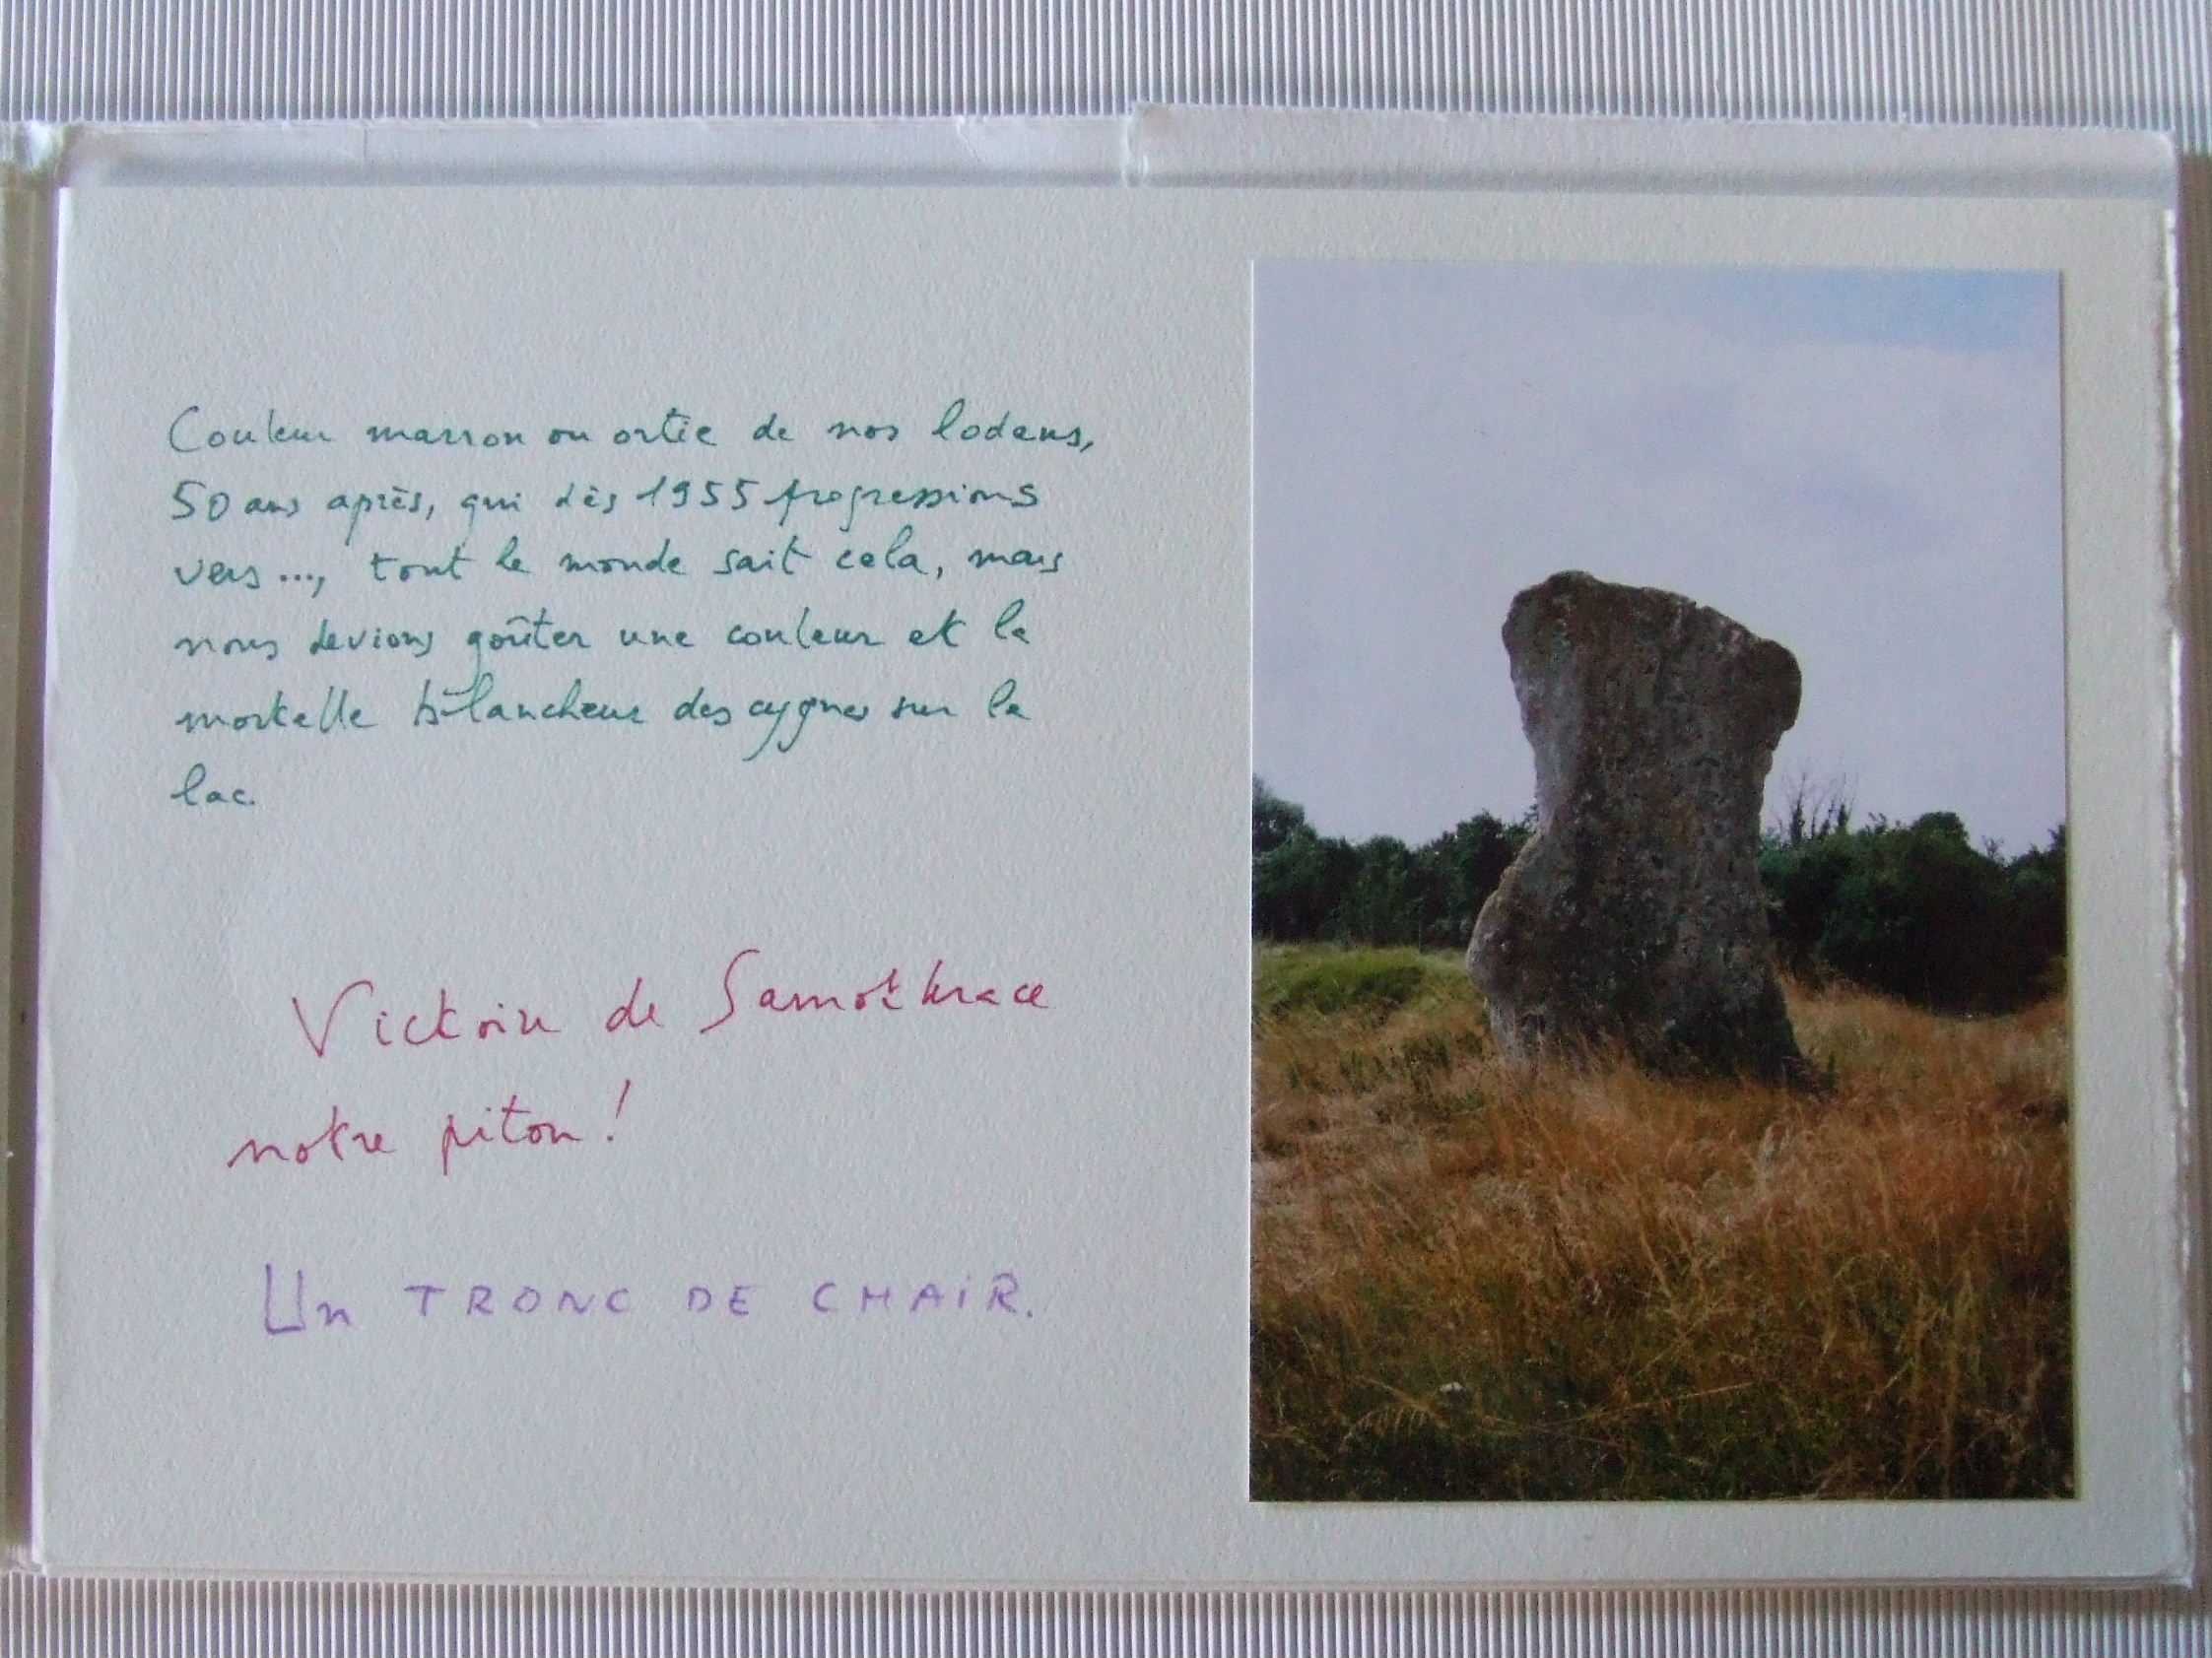 Couleur marron ou ortie de nos lodens,
50 ans après, qui dès 1955 progressions
vers..., tout le monde sait cela, mais
nous devions goûter une couleur et la
mortelle blancheur des cygnes sur le
lac.
Victoire de Samothrace
notre piton !
Un TRONC DE CHAIR.